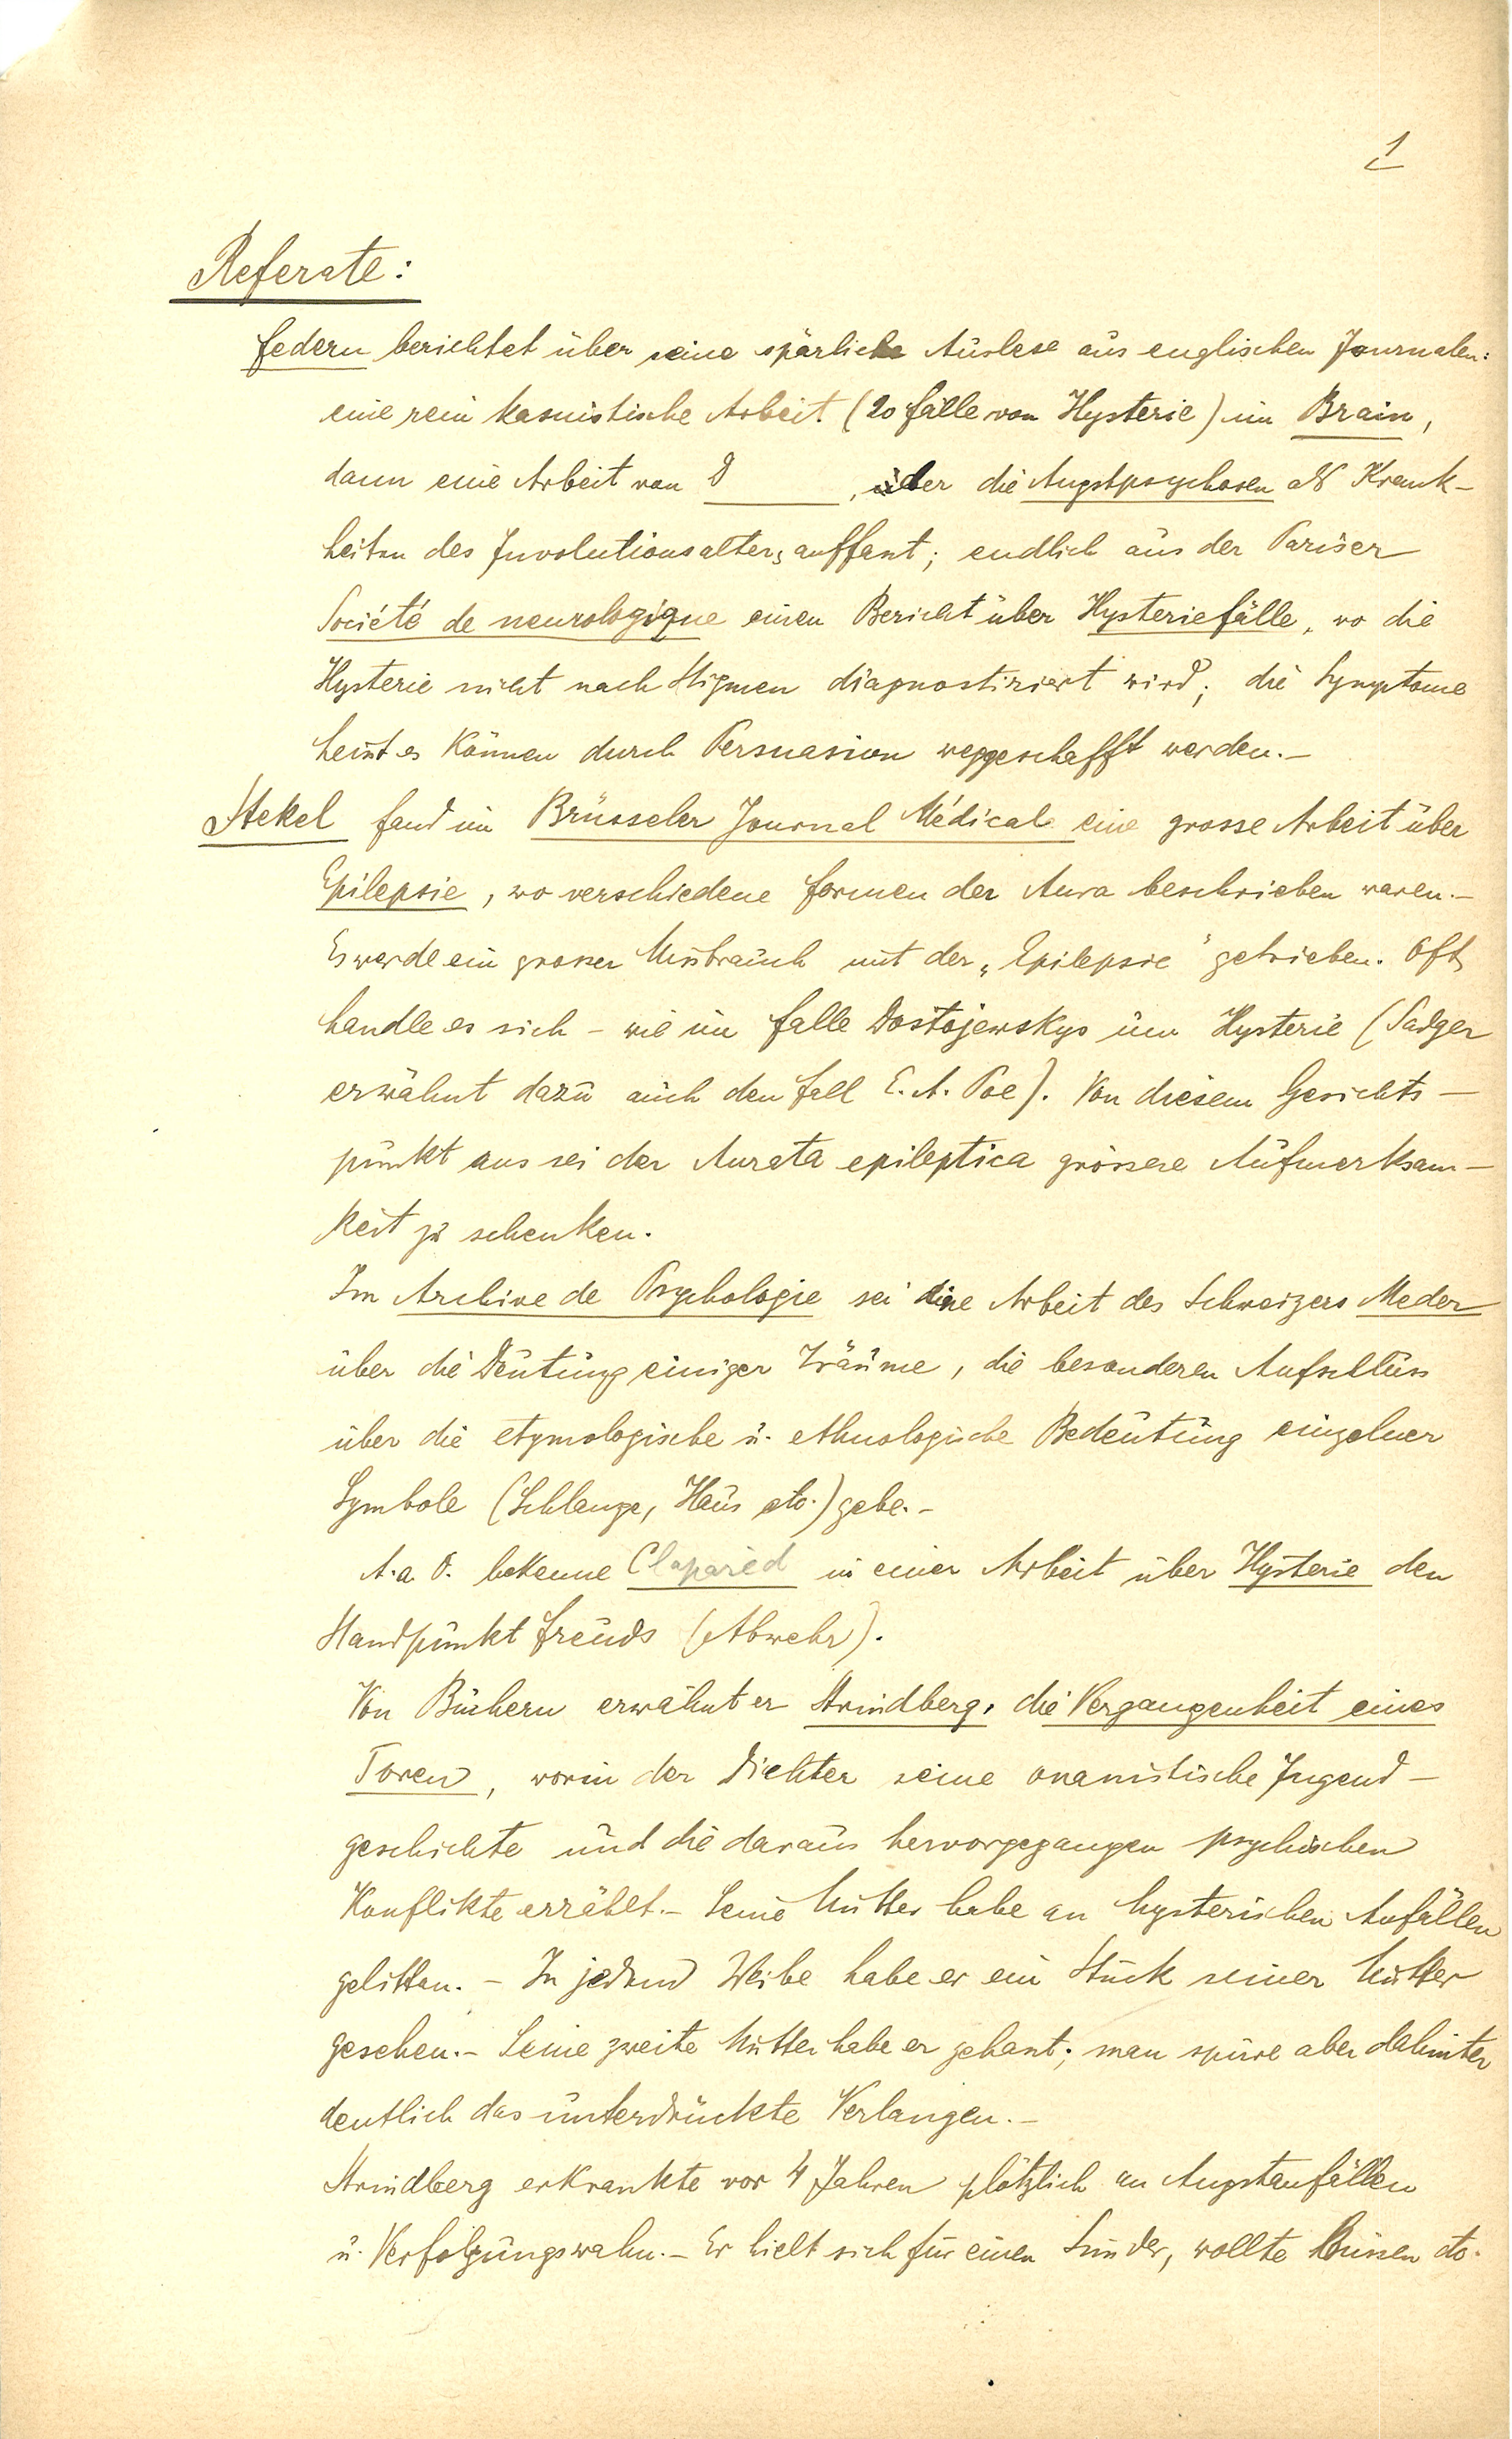 1
Referate:
Federn berichtet über seine spärliche Auslese aus englischen Journalen:
eine rein kasuistische Arbeit (20 Fälle von Hysterie) im Brain,
dann eine Arbeit von D      , der die Angstpsychosen als Krank-
heiten des Involutionsalters auffasst; endlich aus der Pariser
Société de neurologique einen Bericht über Hysteriefälle, wo die
Hysterie nicht nach Stigmen diagnostiziert wird; die Symptome
heisst es können durch Persuasion weggeschafft werden.–
Stekel fand im Brüsseler Journal Médical eine grosse Arbeit über
Epilepsie, wo verschiedene Formen der Aura beschrieben waren.–
Es werde ein grosser Missbrauch mit der „Epilepsie" getrieben. Oft
handle es sich – wie im Falle Dostojewskys um Hysterie (Sadger
erwähnt dazu auch den Fall E. A. Poe). Von diesem Gesichts–
punkt aus sei der Aurata epileptica grössere Aufmerksam–
keit zu schenken.
Im Archive de Psychologie sei eine Arbeit des Schweizers Meder
über die Deutung einiger Träume, die besonderen Aufschluss
über die etymologische u. ethnologische Bedeutung einzelner
Symbole (Schlange, Haus etc.) gebe.–
A. a. O. bekenne Claparèd in einer Arbeit über Hysterie den
Standpunkt Freuds (Abwehr).
Von Büchern erwähnt er Strindberg, die Vergangenheit eines
Toren, worin der Dichter seine onanistische Jugend–
geschichte und die daraus hervorgegangen psychischen
Konflikte erzählt.– Seine Mutter habe an hysterischen Anfällen
gelitten. – In jedem Weibe habe er ein Stück seiner Mutter
gesehen.– Seine zweite Mutter habe er gehasst; man spüre aber dahinter
deutlich das unterdrückte Verlangen.–
Strindberg erkrankte vor 4 Jahren plötzlich an Angstanfällen
u. Verfolgungswahn.– Er hielt sich für einen Sünder, wollte büssen etc.